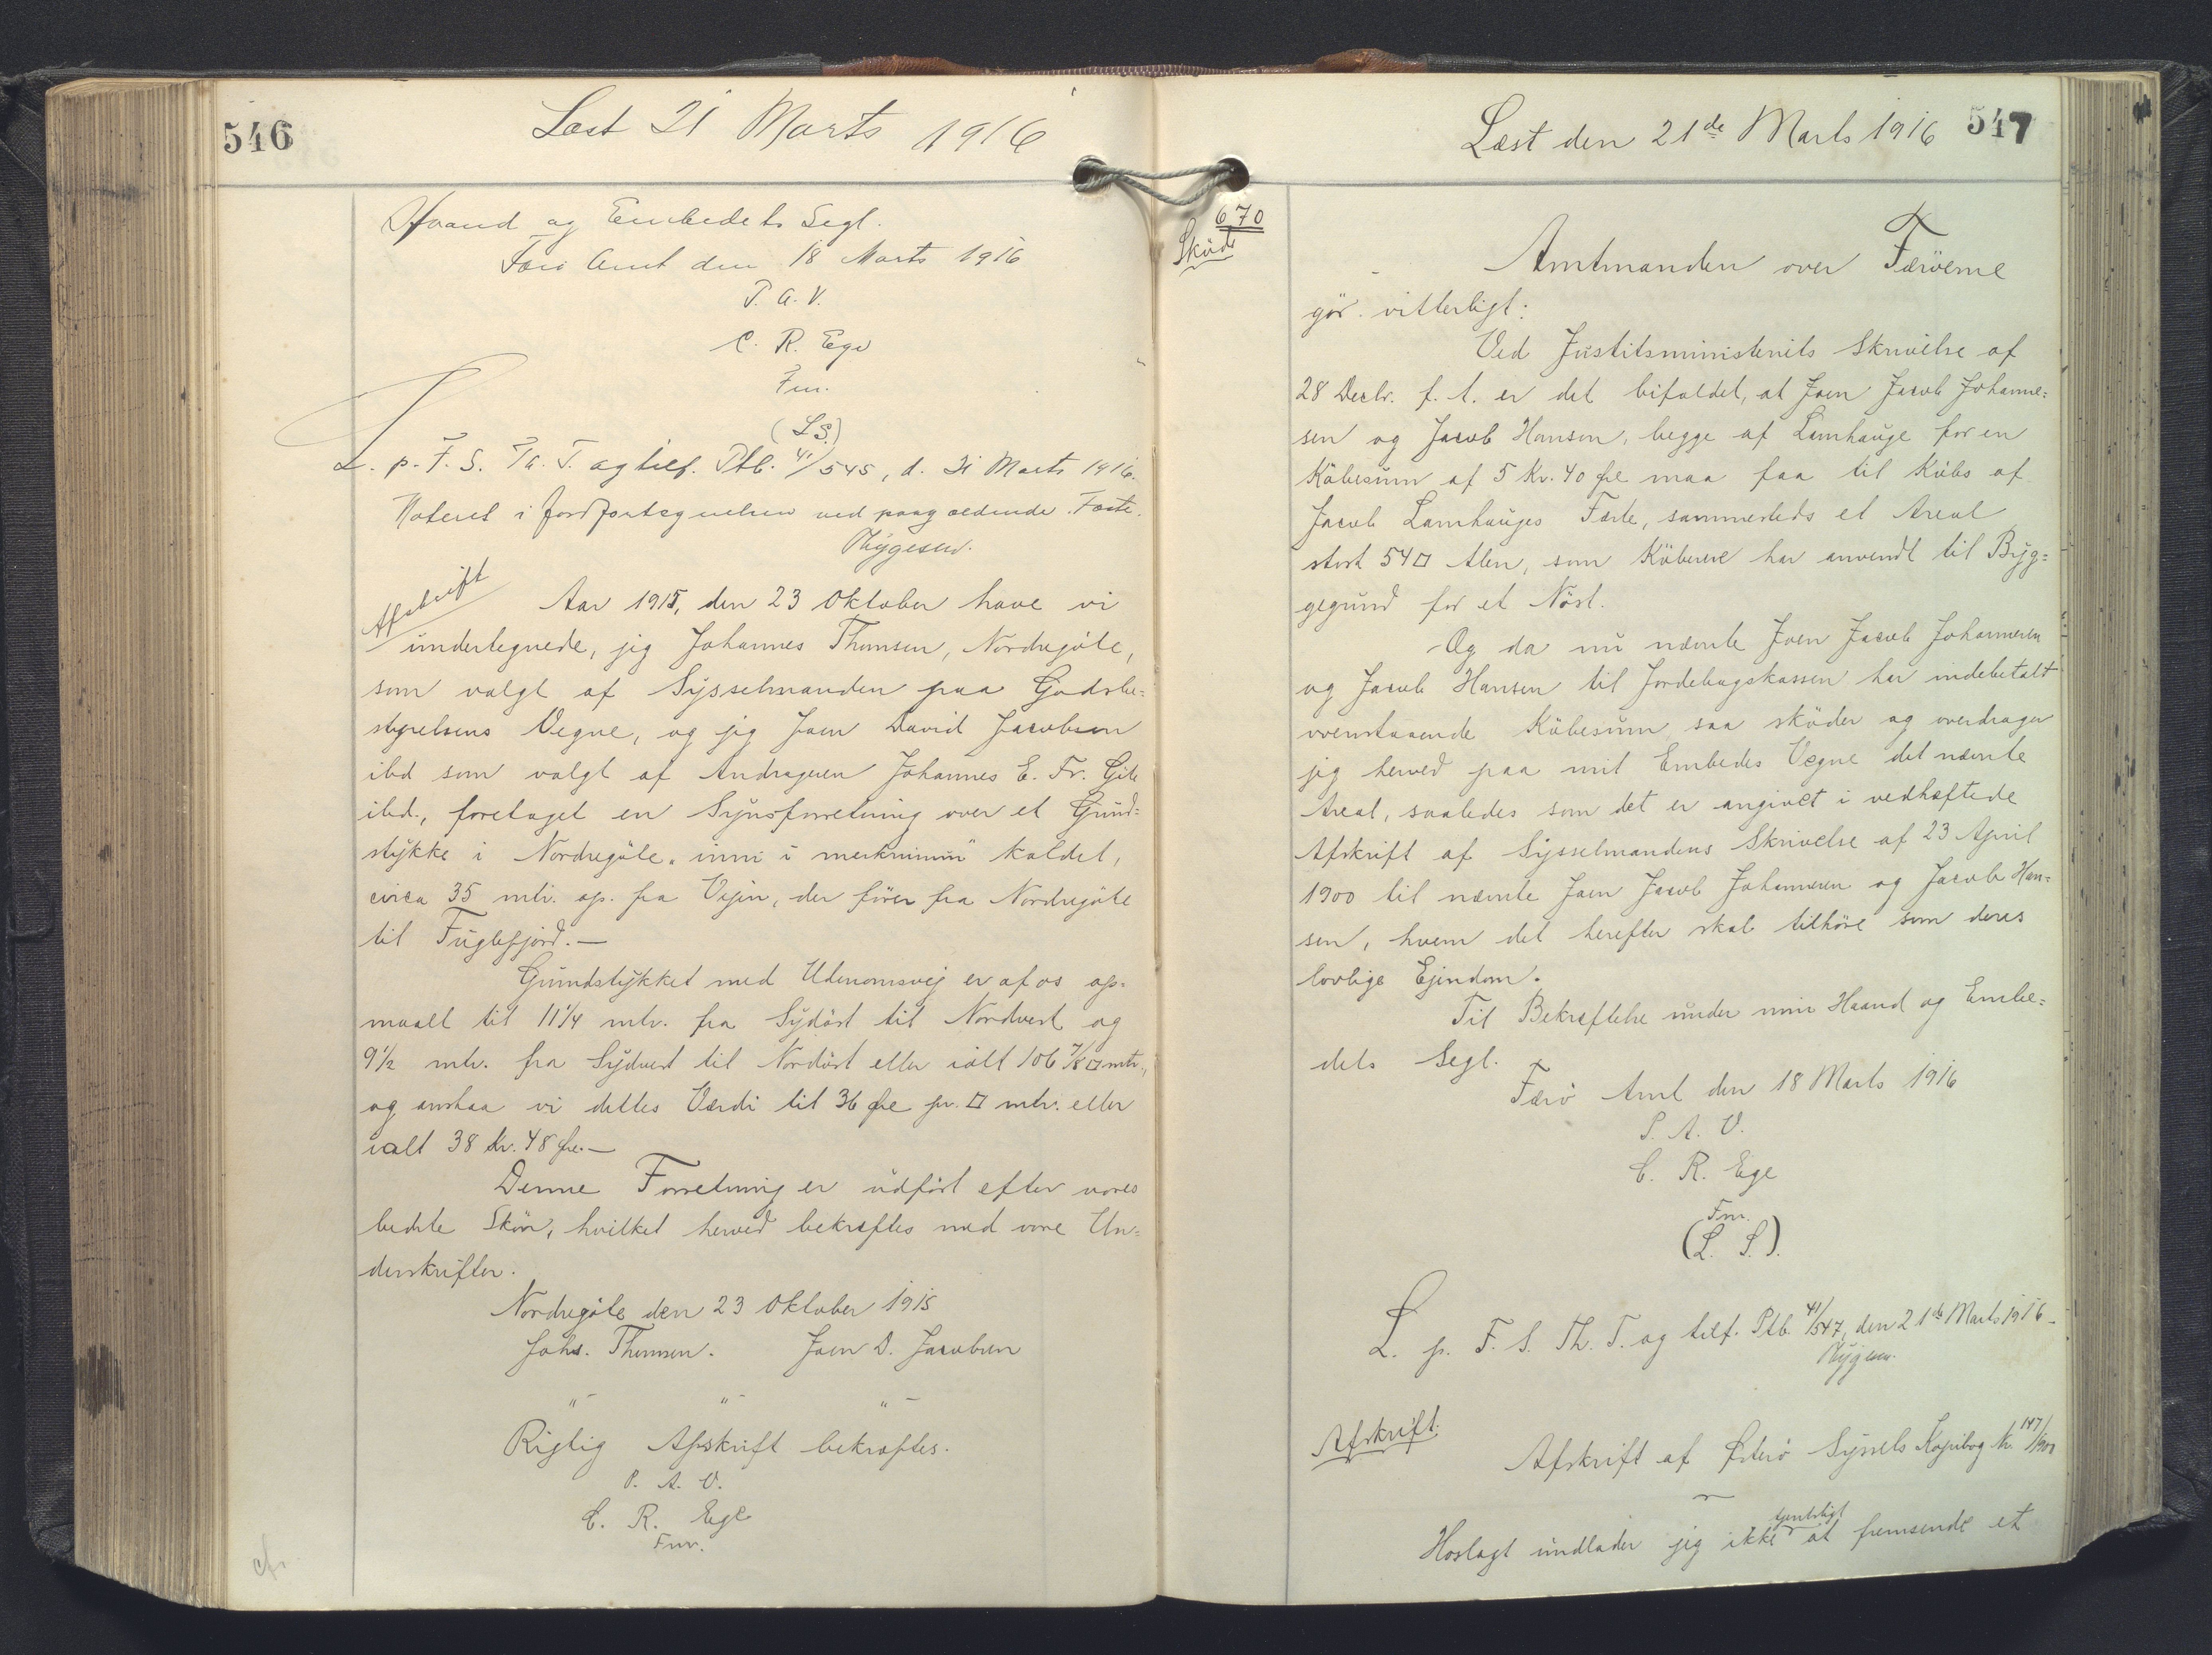 546
Læst 21 Marts 1916
Haand og Embedets Segl.
Færø Amt den 18 Marts 1916
P. A. V.
C. R. Ege
Fm.
(L.S.)
L. p. F. S. Th. T. og tilf. Ptb. 41/545, d. 21 Marts 1916.
Noteret i Jordfortegnelsen ved paagældende Fæste.
Afskrift
Aar 1915, den 23 Oktober have vi
undertegnede, jig Johannes Thomsen, Nordregøte,
som valgt af Sysselmanden paa Godsbe=
styrelsens Vegne, og jig Joen David Jacobsen
ibd som valgt af Andrageren Johannes E. Fr. Gøte
ibd., foretaget en Synsforretning over et Grund=
stykke i Nordregøte "inni i merkininni" kaldet,
circa 35 mtr. op. fra Vejen, der fører fra Nordregøte
til Fuglefjord.—
Grundstykket med Udenomsvej er af os op=
maalt til 11 1/4 mtr. fra Sydøst til Nordvest og
9 1/2 mtr. fra Sydvest til Nordøst eller ialt 106 7/8 □ mtr.,
og anslaa vi dettes Værdi til 36 Øre pr. □ mtr. eller
ialt 38 Kr. 48 Øre.—
Denne Forretning er udført efter vores
bedste Skøn, hvilket herved bekræftes med vore Un=
derskrifter.
Nordregøte den 23 Oktober 1915
Johs. Thomsen. Joen D. Jacobsen
"— "— "—
Rigtig Afskrift bekræftes.
P. A. V.
C. R. Ege
Fm.
Læst den 21de Marts 1916
547
670
Skøde
Amtmanden over Færøerne
gør vitterligt:
Ved Justitsministeriets Skrivelse af
28 Decbr. f. A. er det bifaldet, at Joen Jacob Johanne=
sen og Jacob Hansen, begge af Lamhauge for en
Købesum af 5 Kr. 40 Øre maa faa til Købs af
Jacob Lamhauges Fæste, sammesteds et Areal
stort 54 □ Alen, som Køberne har anvendt til Byg=
gegrund for et Nøst.
Og da nu nævnte Joen Jacob Johannesen
og Jacob Hansen til Jordebogskassen har indebetalt
ovenstaaende Købesum saa skøder og overdrager
jig herved paa mit Embedes Vegne det nævnte
Areal, saaledes som det er angivet i vedhæftede
Afskrift af Sysselmandens Skrivelse af 23 April
1900 til nævnte Joen Jacob Johannesen og Jacob Han=
sen, hvem det herefter skal tilhøre som deres
lovlige Ejendom.
Til Bekræftelse under min Haand og Embe=
dets Segl.
Færø Amt den 18 Marts 1916
P. A. V.
C. R. Ege
Fm.
(L. S.)
L. p. F. S. Th. T. og tilf. Ptb. 41/547, den 21de Marts 1916.
Afskrift.
Afskrift af Østerø Syssels Kopibog Nr. 147/1900
Hoslagt undlader jig ikke tjenstligt at fremsende et